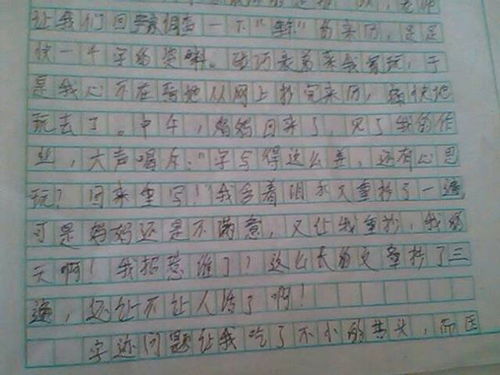 让我们回家调查一下"鲜"的来历，足足
快一千字的资料。碰巧表弟来我家玩，于
是我心不在焉地从网上抄完来历，飞快地
玩去了。中午，妈妈回来了，见了我的作
业，大声喝斥："字写得这么差，还有心思
玩？回来重写！"我含着泪水又重抄了一遍，
可是妈妈还是不满意，又让我重抄，我的
天啊！我招惹谁了？这么长的文章抄了三
遍，还让不让人活了啊！
字迹问题让我吃了不小的苦头，而因